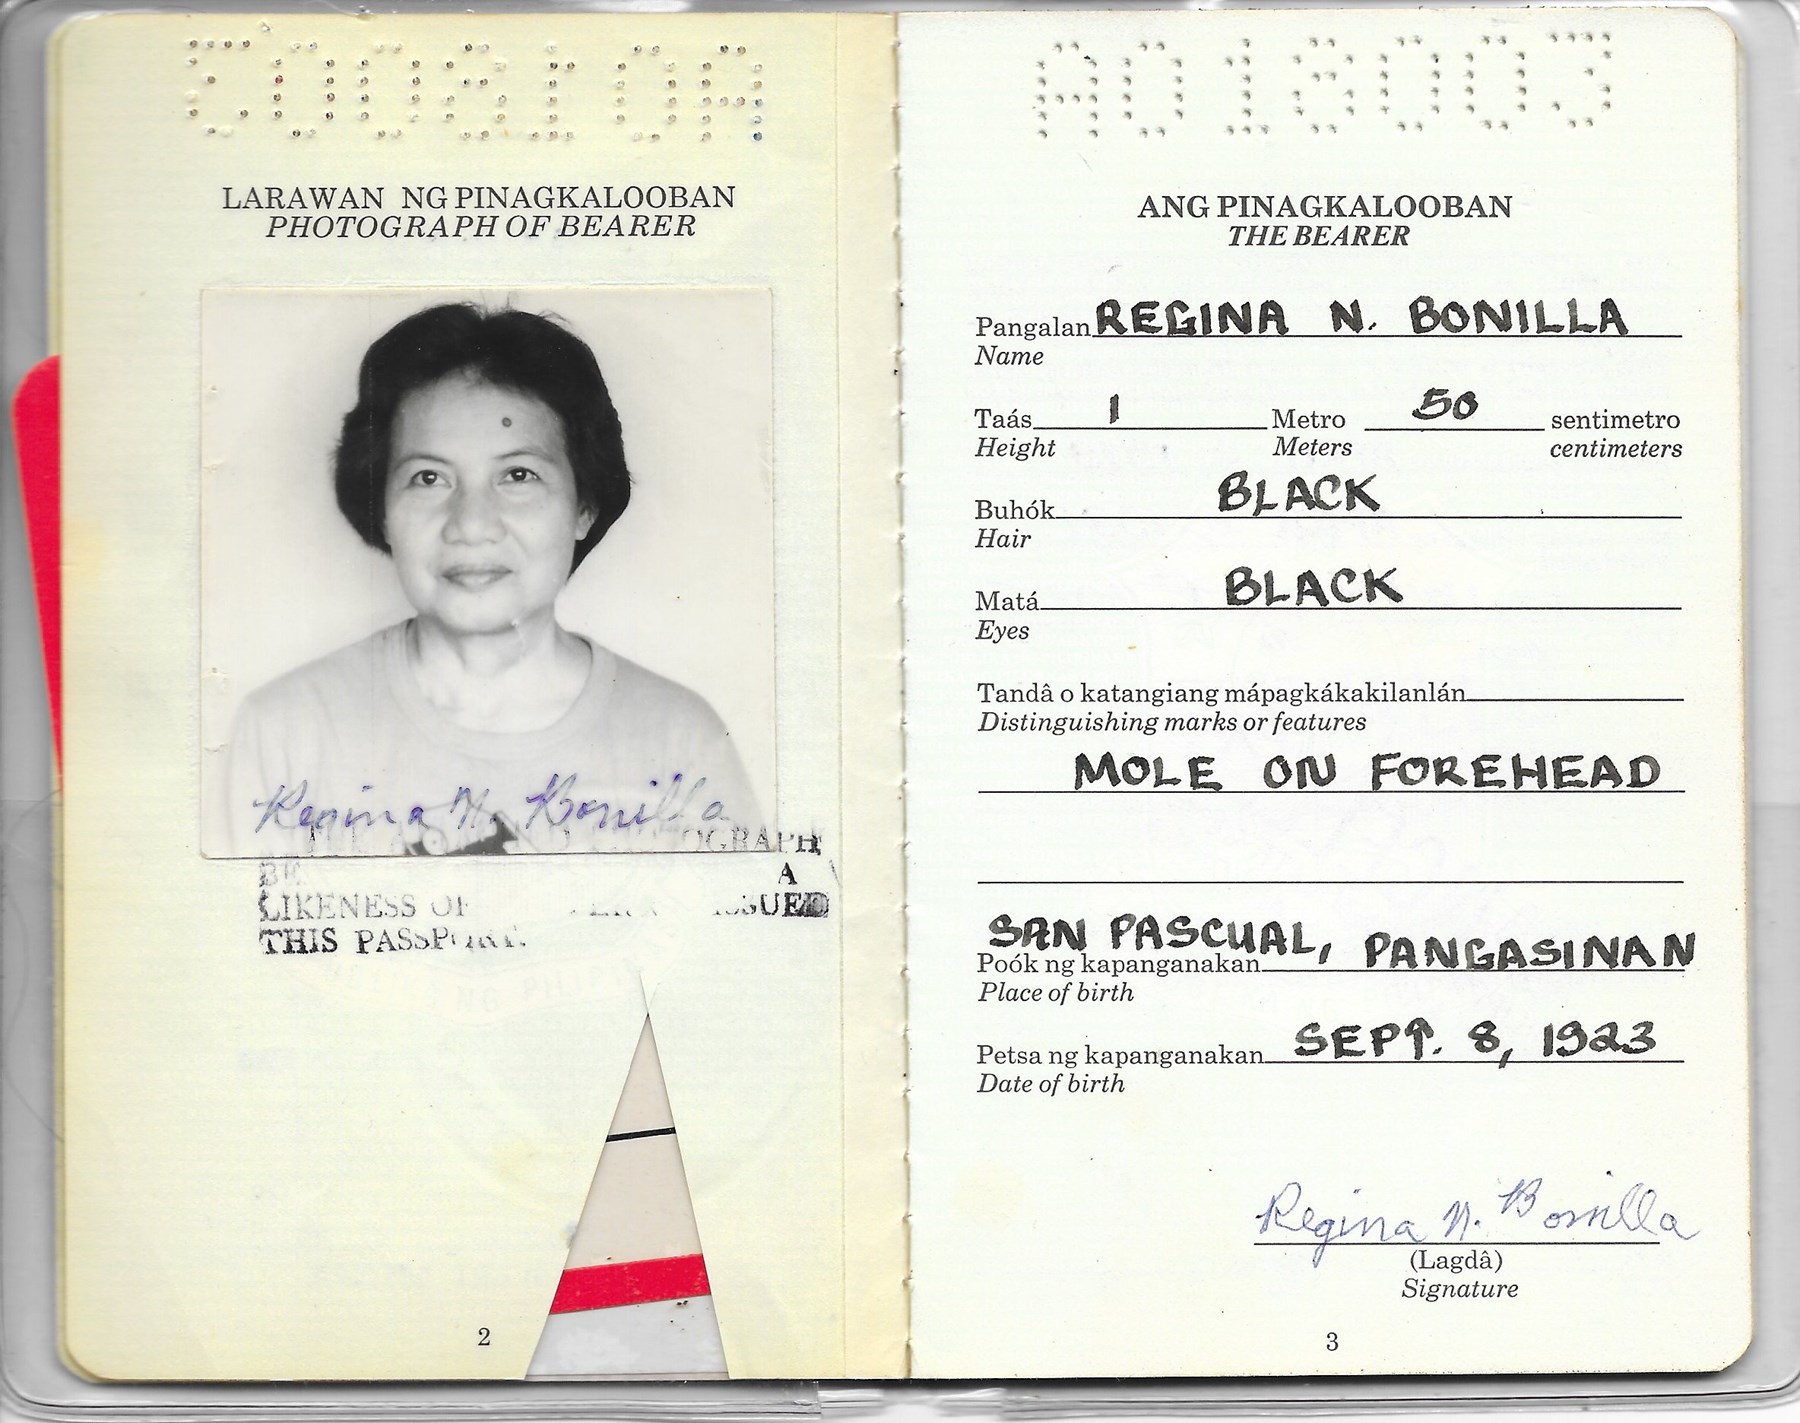 E00810A
LARAWAN NG PINAGKALOOBAN
PHOTOGRAPH OF BEARER
Regina N. Bonilla
OGRAPH
BE A
LIKENESS OF ISSUED
THIS PASSPORT.
2
A018003
ANG PINAGKALOOBAN
THE BEARER
Pangalan REGINA N. BONILLA
Name
Taás 1 Metro 50 sentimetro
Height Meters centimeters
Buhók BLACK
Hair
Matá BLACK
Eyes
Tandâ o katangiang mápagkákakilanlán
Distinguishing marks or features
MOLE ON FOREHEAD
SAN PASCUAL, PANGASINAN
Poók ng kapanganakan
Place of birth
Petsa ng kapanganakan SEPT. 8, 1923
Date of birth
Regina N. Bonilla
(Lagdâ)
Signature
3